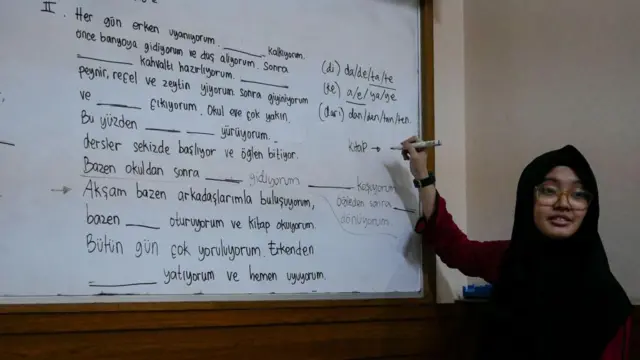 II. Her gün erken uyanıyorum. ______ kalkıyorum.
önce banyoya gidiyorum ve duş alıyorum. Sonra
______ kahvaltı hazırlıyorum. ______
peynir, reçel ve zeytin yiyorum sonra giyiniyorum
ve ______ çıkıyorum. Okul eve çok yakın.
Bu yüzden ______ ______ yürüyorum.
dersler sekizde başlıyor ve öğlen bitiyor.
Bazen okuldan sonra ______ gidiyorum ______ koşuyorum
→ Akşam bazen arkadaşlarımla buluşuyorum,
bazen ______ oturuyorum ve kitap okuyorum.
Bütün gün çok yoruluyorum. Erkenden
______ yatıyorum ve hemen uyuyorum.
öğleden sonra
dönüyorum
(di) da/de/ta/te
a/e/ya/ye
dan/den/tan/ten.
kitap →